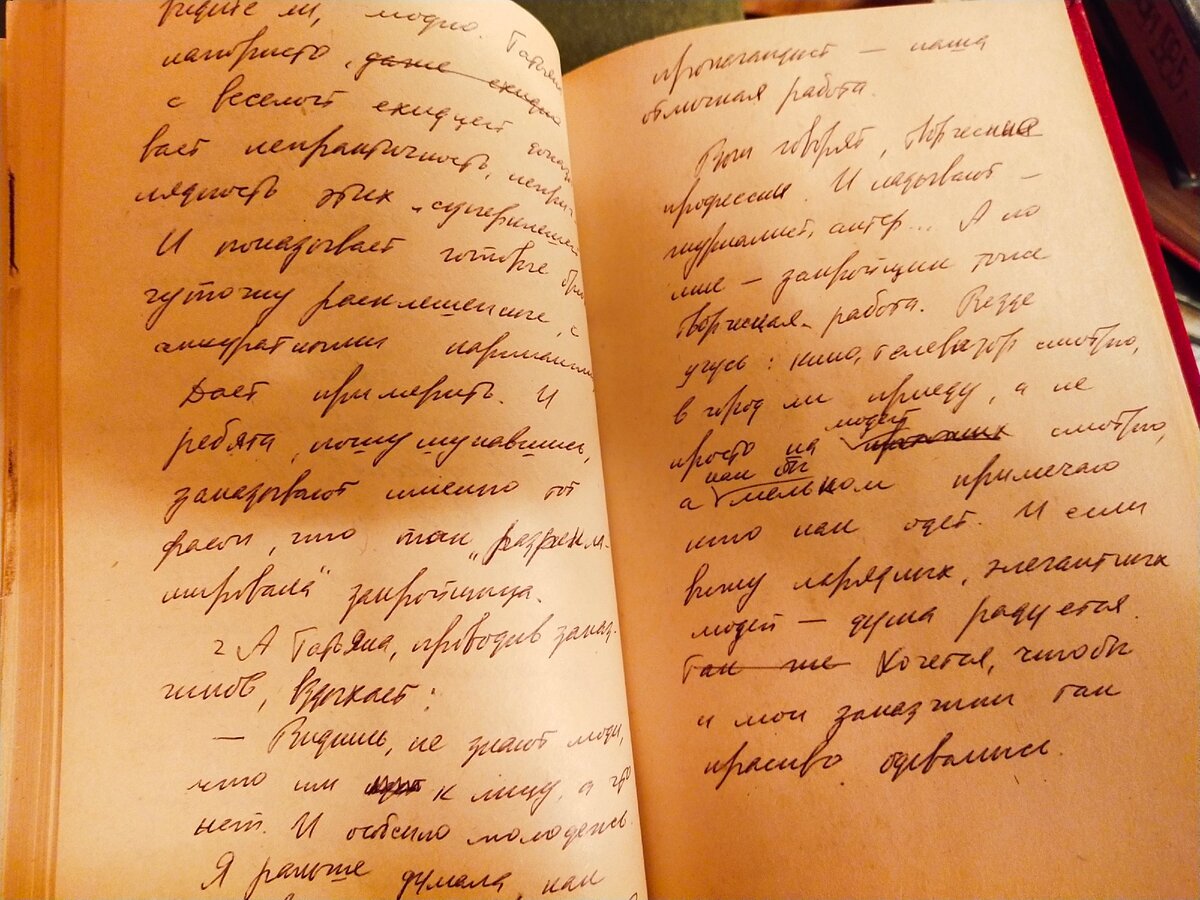 видите ли, модно. Татьяна
напористо, даже ехидно
с веселой ехидцей дока
вает непрактичность, непри
лядность этих „супермешк
И показывает готовые брю
чуточку расклешенные, с
аккуратными карманами
Дает примерить. И
ребята, пошушукавшись,
заказывают именно тот
фасон, что так „разрекла-
мировала" закройщица.
А Татьяна, проводив заказ-
чиков, вздыхает:
— Видишь, не знают люди,
что им к лицу, а что
нет. И особенно молодежь.
Я раньше думала, как
пропагандист — наша
отличная работа.
Вот говорят, творческие
профессии. И называют —
журналист, актер... А по
мне — закройщик тоже
творческая работа. Везде
учусь: кино, телевизор смотрю,
в город ли приеду, а не
просто на людей прохожих смотрю,
а как бы мельком примечаю
кто как одет. И если
вижу нарядных, элегантных
людей — душа радуется.
Так же Хочется, чтобы
и мои заказчики так
красиво одевались.
ДЕБЮТ